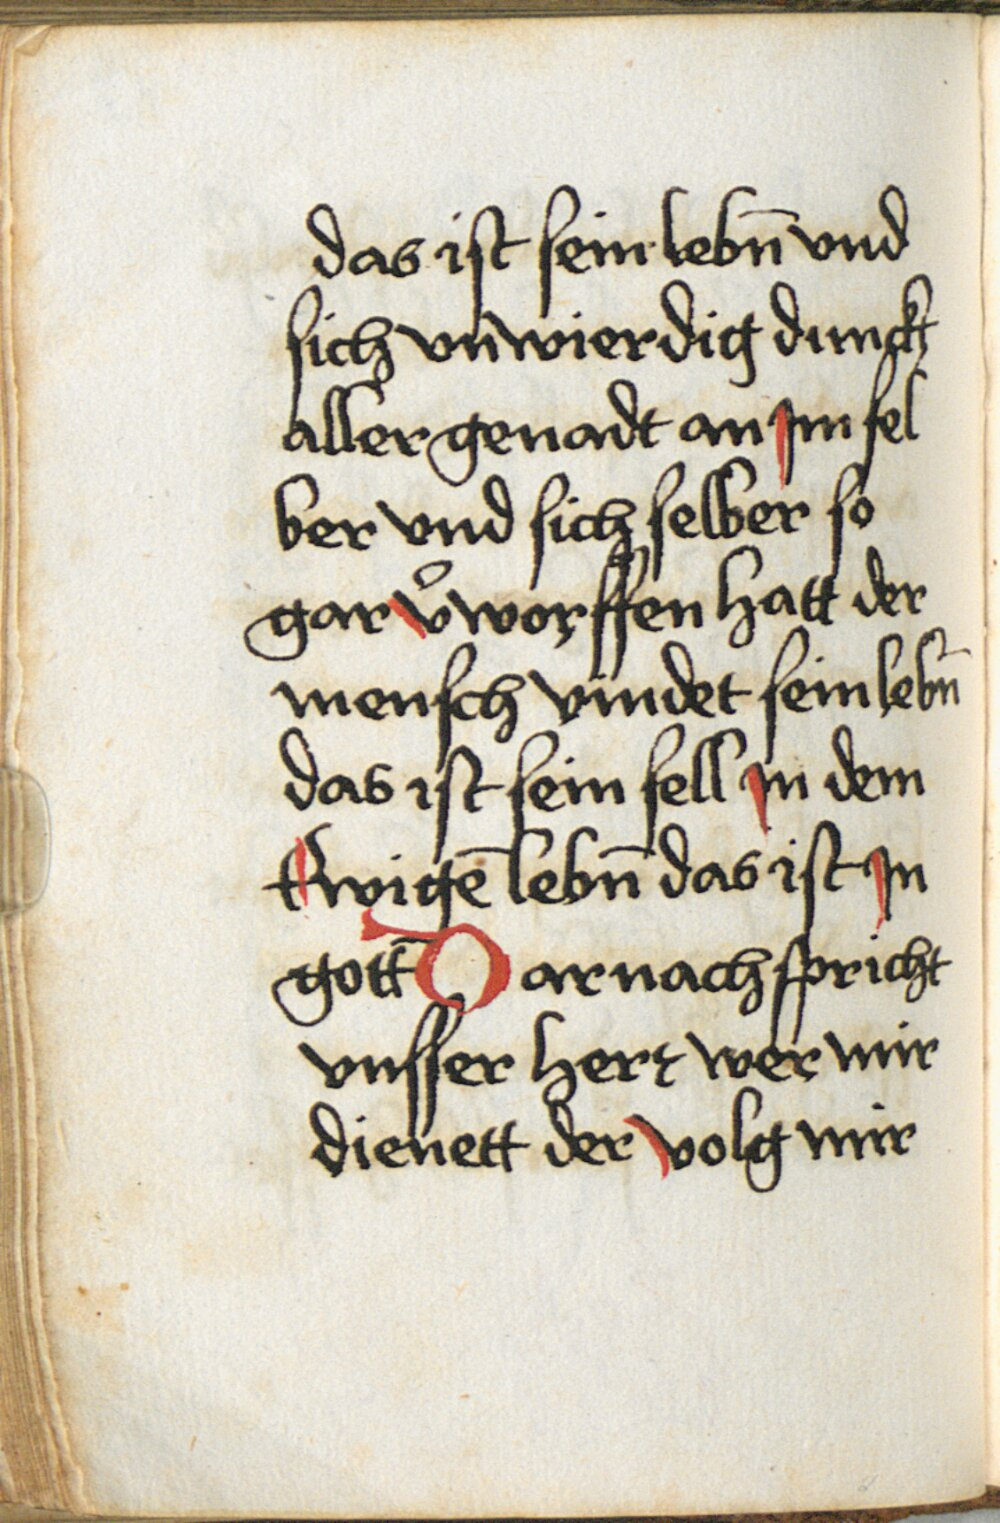 das ist sein lebn̄ vnd
sich vnwierdig dunckt
aller genadt an Jm sel
ber vnd sich selber so
gar v̉worffen hatt der
mensch vindet sein lebn̄
das ist sein sell Jn dem
Ewigē lebn̄ das ist Jn
gott Darnach spricht
vnsser herr wer mir
dienett der volg mir